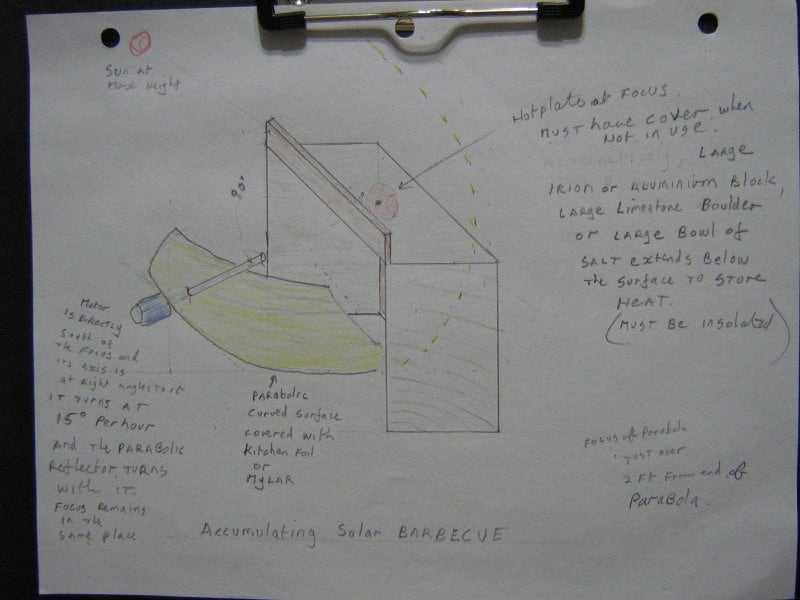 Sun At
Max Height
Hotplate at Focus.
Must have cover when
Not in use.
Alternatively, Large
Irion or Aluminium Block,
Large Limestone Boulder
or Large Bowl of
Salt extends Below
The Surface To Store
Heat.
(Must Be insolated)
90°
Motor
is Directly
South of
The Focus and
its Axis is
at Right Angles to it
It turns at
15° Per hour
And the Parabolic
Reflector Turns
with it.
Focus Remains
in the
Same place.
Parabolic
Curved Surface
covered with
Kitchen Foil
or
Mylar
Focus of Parabola
Just over
2 Ft From end of
Parabola.
Accumulating Solar BARBECUE